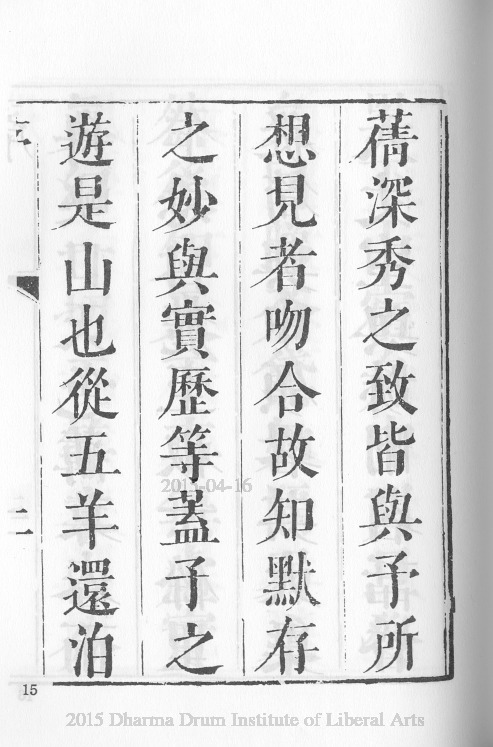 蒨深秀之致皆與予所
想見者吻合故知默存
之妙與實歷等蓋予之
遊是山也從五羊還泊
序
二
15
2015-04-16
2015 Dharma Drum Institute of Liberal Arts